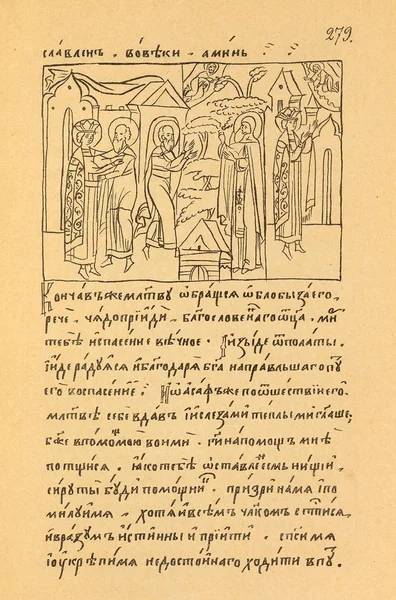 279.
сла́вленъ · вовѣ́ки · ами́нь ·
Кончавъжемл҃тву ѡ҆бращсѧ ѡ҆блобыза́его,
речѐ · ча́допрїиди̂ · благослове́нагоѻц҃а · ми́
тебѣ̀ испасе́ние вѣ́чное · Иизы́де ѿпола́ты ·
и҆и́де ра́дуѧсѧ иблагодарѧ̀ бг҃а напра́вльшаго пꙋ
его̀ воспасе́нїе · Иѡ҆аса́фъже поѿше́ствїи его̀ ·
мл҃твѣ себѐ вда́въ · исле́зами те́плыми гл҃аше ·
бж҃е в̾по́мощь мою̀ во́нми · гд҃и на́помощъ мнѣ̀
потщи́сѧ · ꙗ҆́ко тебѣ̀ ѡ҆ста́вленъ е҆́смь ни́щїи ·
си́рꙋ ты̀ бꙋ́ди помо́щни · при́зри на́мѧ ипо
ми́лꙋи мѧ · хотѧ́и всѣ́мъ чл҃комъ сп҃сти́сѧ ·
и҆вра́зꙋмъ и҆́стинны и҆ прїитѝ · сп҃си мѧ
ї҆оу҆крѣпи́мѧ недосто́инаго ходи́ти в̾пꙋ̀ ·